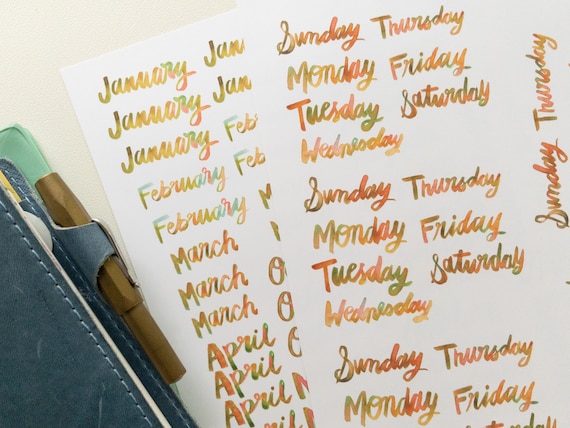 January Jan
January Jan
January Feb
February Feb
February
March
March
March
April
April
April
Sunday Thursday
Monday Friday
Tuesday Saturday
Wednesday
Sunday Thursday
Monday Friday
Tuesday Saturday
Wednesday
Sunday Thursday
Monday Friday
Tuesday Saturday
Sunday Thursday